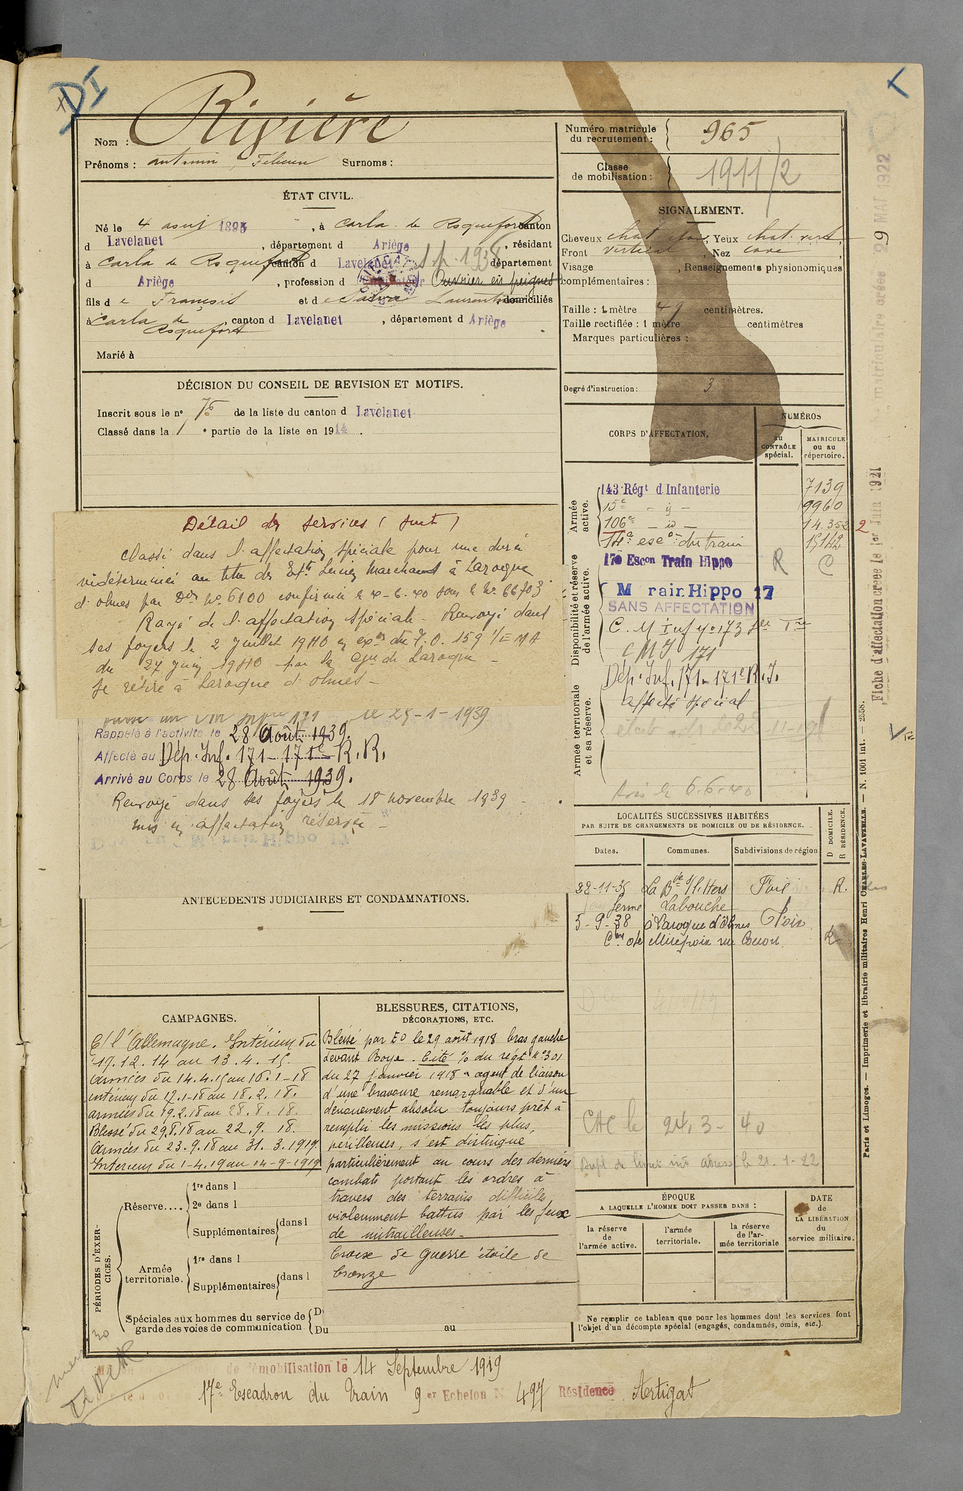 DI
Nom : Rivière
Prénoms : antonin, Surnoms :
Numéro matricule du recrutement : 965
Classe de mobilisation : 1911/2
ÉTAT CIVIL.
Né le 4 1893, à Carla de Roquefort canton
d Lavelanet, département d Ariège, résidant
à Carla de Roquefort canton d Lavelanet département
d Ariège, profession d Ouvrier en peignes
fils de François et de Laurent domiciliés
à Carla de Roquefort, canton d Lavelanet, département d Ariège
Marié à
SIGNALEMENT.
Cheveux chat, Yeux chat. vert
Front vertical, Nez cave
Visage , Renseignements physionomiques
complémentaires :
Taille : 1 mètre 49 centimètres.
Taille rectifiée : 1 mètre centimètres
Marques particulières :
Degré d'instruction : 3
DÉCISION DU CONSEIL DE REVISION ET MOTIFS.
Inscrit sous le n° de la liste du canton d Lavelanet
Classé dans la 1e partie de la liste en 1914.
CORPS D'AFFECTATION.
NUMÉROS
AU CONTRÔLE spécial.
MATRICULE OU AU répertoire.
Armée active.
143 Régt d'Infanterie 7139
15e - d° - 9960
106e - d° - 14.352
Disponibilité et réserve de l'armée active.
esc on du train 15142
17e Escon Train Hippo R C
M rain Hippo 17
SANS AFFECTATION
C. M Inf n° 173
C M I 171
Armée territoriale et sa réserve.
Dép. Inf. 171 - 171e R.I.
affecté spécial
6.6.40
Détail des services (suite)
Classé dans l'affectation spéciale pour une durée
indéterminée au titre des Marchand à Laroque
d'olmes par Don n° 6100 confirmée le 4-6-40 sous le n° 66203
Rayé de l'affectation spéciale. Renvoyé dans
ses foyers le 2 juillet 1940 en exon de l'I.O. 159 1/EMA
du 27 juin 1940 par la Gie de Laroque -
Se retire à Laroque d'olmes -
le 25-1-1939
Rappelé à l'activité le 28 Août 1939.
Affecté au Dép. Inf. 171 - 171e R.R.
Arrivé au Corps le 28 Août 1939.
Renvoyé dans ses foyers le 18 novembre 1939 -
mis en affectation réservée -
ANTÉCÉDENTS JUDICIAIRES ET CONDAMNATIONS.
LOCALITÉS SUCCESSIVES HABITÉES
PAR SUITE DE CHANGEMENTS DE DOMICILE OU DE RÉSIDENCE.
Dates. Communes. Subdivisions de région D DOMICILE. R RÉSIDENCE.
28-11-35 La Bde s/l'Hers Foix R.
ferme Labouche
5-9-38 à Laroque d'Olmes Foix
Mirepoix R
CAMPAGNES.
C/ l'Allemagne. Intérieur du
19.12.14 au 13.4.15
Armées du 14.4.15 au 16.1-18
intérieur du 17.1-18 au 18.2.18.
armées du 19.2.18 au 28.8.18.
Blessé du 29.8.18 au 22.9.18.
Armées du 23.9.18 au 31.3.1919
Intérieur du 1-4.19 au 14-9-1919
BLESSURES, CITATIONS,
DÉCORATIONS, ETC.
Blessé par EO le 29 août 1918 bras gauche
devant Noyon. Cité % du régt n° 301
du 27 janvier 1918 « agent de liaison
d'une bravoure remarquable et d'un
dévouement absolu toujours prêt à
remplir les missions les plus,
périlleuses, s'est distingué
particulièrement au cours des derniers
combats portant les ordres à
travers des terrains difficiles
violemment battus par les feux
de mitrailleuses.
Croix de guerre étoile de
bronze
CAC le 24.3-40
le 21.1-22
PÉRIODES D'EXERCICES.
Réserve....
1re dans l
2e dans l
Supplémentaires dans l
Armée territoriale.
1re dans l
Supplémentaires dans l
Spéciales aux hommes du service de
garde des voies de communication.
Du
Du au
ÉPOQUE
A LAQUELLE L'HOMME DOIT PASSER DANS :
la réserve de l'armée active.
l'armée territoriale.
la réserve de l'armée territoriale
DATE de LA LIBÉRATION du service militaire.
Ne remplir ce tableau que pour les hommes dont les services font
l'objet d'un décompte spécial (engagés, condamnés, omis, etc.).
démobilisation le 14 Septembre 1919
17e Escadron du Train 9 er Echelon N° 497 Résidence Artigat
Fiche d'affectation créée le 1er Juin 1921
matriculaire créée 9 MAI 1922
Paris et Limoges. — Imprimerie et librairie militaires Henri CHARLES-LAVAUZELLE. — N. 1001 int. — 2558.